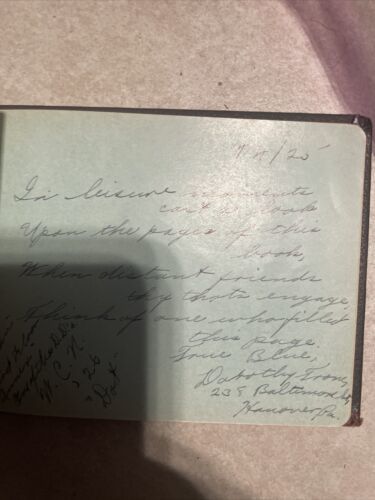 In leisure moments
cast a look
Upon the pages of this
book,
When distant friends
thy thots engage
Think of one who filled
this page.
True Blue,
Dorothy
238 Baltimore
Hanover Pa.
W. C. N.
'26
"Dot"